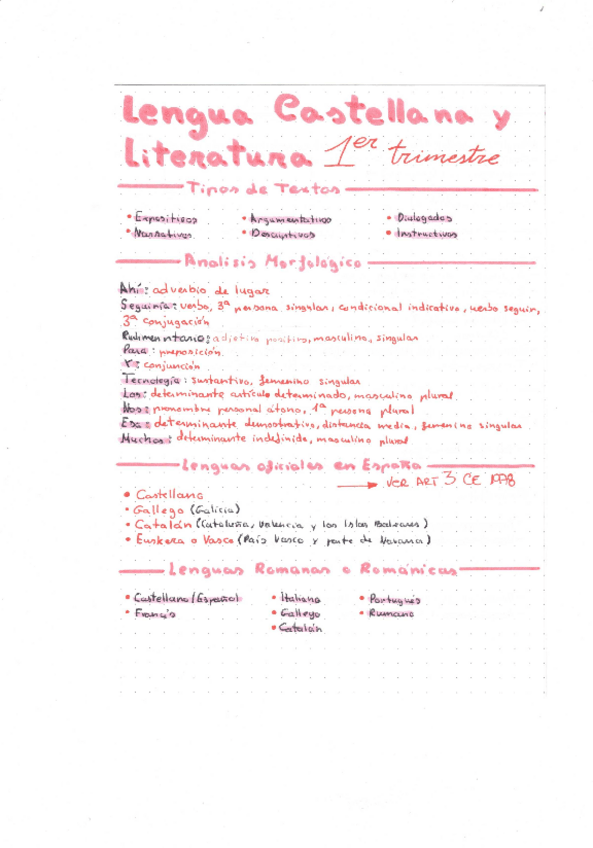 Lengua Castellana y
Literatura 1er trimestre
Tipos de Textos
• Expositivos • Argumentativos • Dialogados
• Narrativos • Descriptivos • Instructivos
Análisis Morfológico
Ahí: adverbio de lugar
Seguiría: verbo, 3ª persona singular, condicional indicativo, verbo seguir,
3ª conjugación
Rudimentario: adjetivo positivo, masculino, singular
Para: preposición
Y: conjunción
Tecnología: sustantivo, femenino singular
Los: determinante artículo determinado, masculino plural.
Nos: pronombre personal átono, 1ª persona plural
Esa: determinante demostrativo, distancia media, femenino singular
Muchos: determinante indefinido, masculino plural
Lenguas oficiales en España
→ VER ART 3 CE 1978
• Castellano
• Gallego (Galicia)
• Catalán (Cataluña, Valencia y las Islas Baleares)
• Euskera o Vasco (País Vasco y parte de Navarra)
Lenguas Romanas o Románicas
• Castellano/Español • Italiano • Portugués
• Francés • Gallego • Rumano
• Catalán